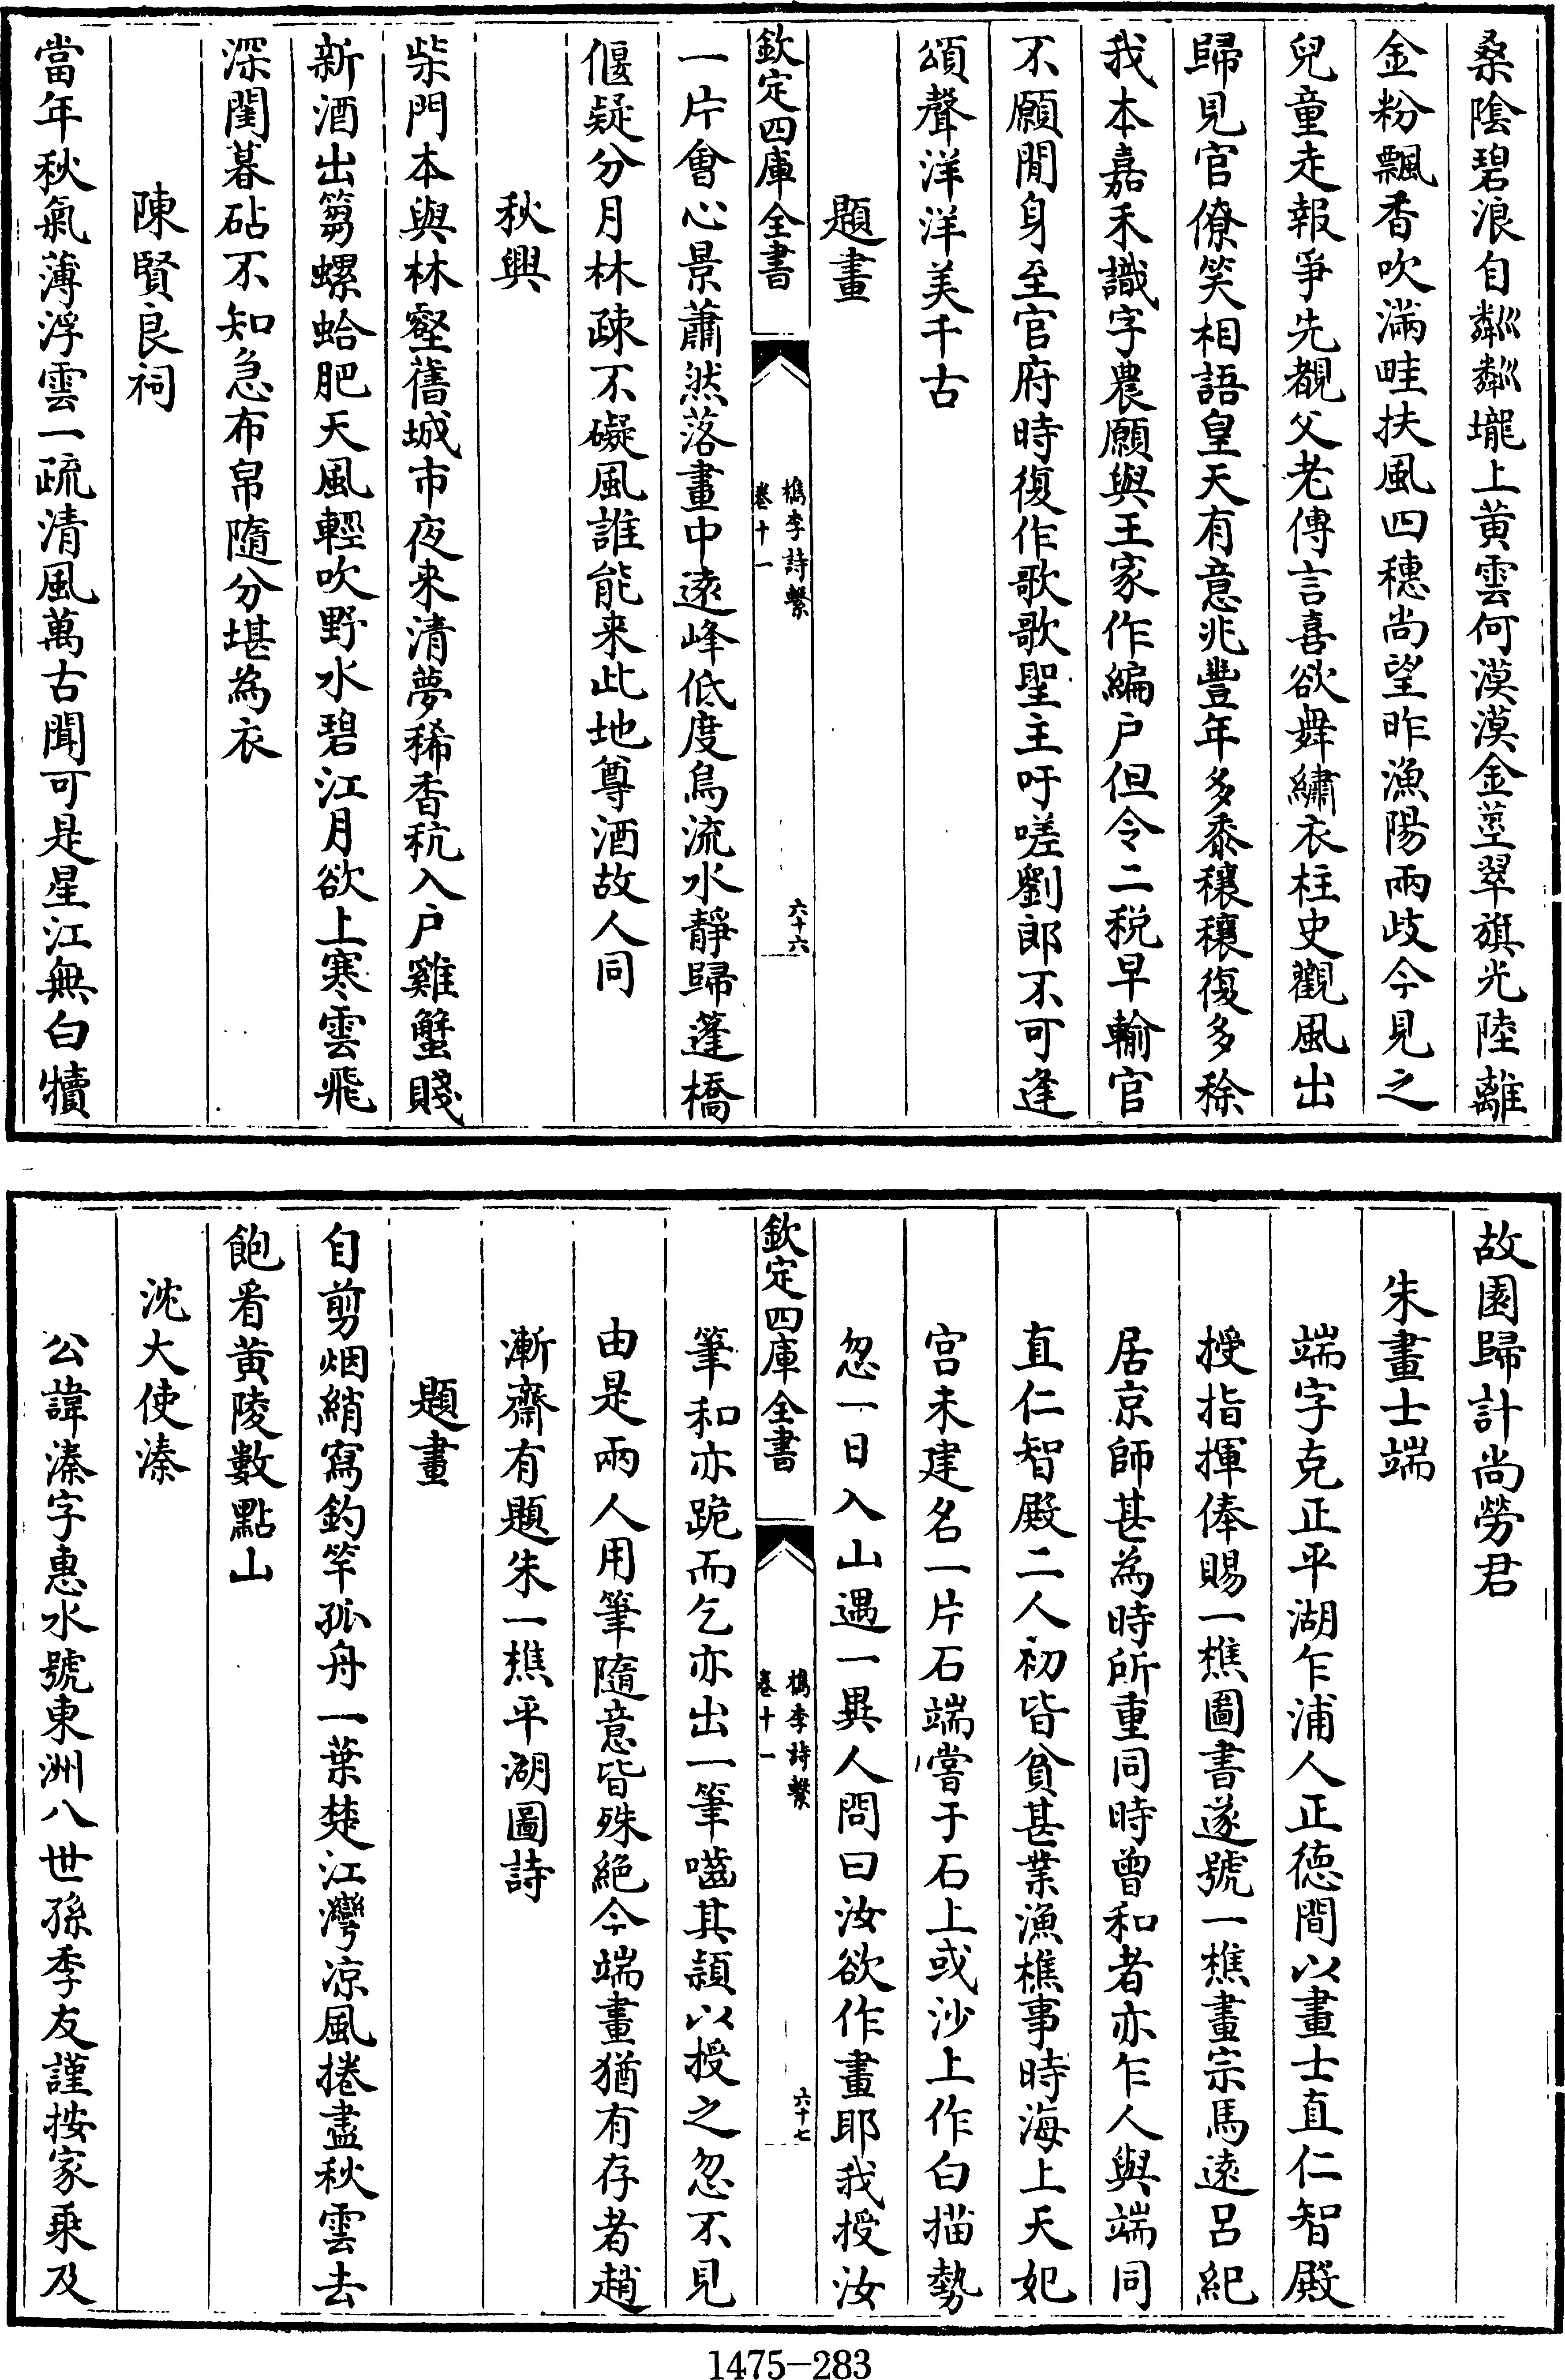 桑陰碧浪自粼粼壠上黄雲何漠漠金莖翠旗光陸離
金粉飄香吹滿畦扶風四穗尚望昨漁陽兩歧今見之
兒童走報爭先覩父老傳言喜欲舞繡衣柱史觀風出
歸見官僚笑相語皇天有意兆豐年多黍穰穰復多稌
我本嘉禾識字農願與王家作編户但令二税早輸官
不願閒身至官府時復作歌歌聖主吁嗟劉郎不可逢
頌聲洋洋美千古
題畫
欽定四庫全書
檇李詩繫
卷十一
六十六
一片會心景蕭然落畫中遠峰低度鳥流水靜歸蓬橋
偃疑分月林疎不礙風誰能来此地尊酒故人同
秋興
柴門本與林壑舊城市夜来清夢稀香秔入户雞蟹賤
新酒出篘螺蛤肥天風輕吹野水碧江月欲上寒雲飛
深閨暮砧不知急布帛隨分堪為衣
陳賢良祠
當年秋氣薄浮雲一疏清風萬古聞可是星江無白犢
故園歸計尚勞君
朱畫士端
端字克正平湖乍浦人正德間以畫士直仁智殿
授指揮俸賜一樵圖書遂號一樵畫宗馬遠呂紀
居京師甚為時所重同時曾和者亦乍人與端同
直仁智殿二人初皆貧甚業漁樵事時海上天妃
宫未建名一片石端嘗于石上或沙上作白描勢
忽一日入山遇一異人問曰汝欲作畫耶我授汝
欽定四庫全書
檇李詩繫
卷十一
六十七
筆和亦跪而乞亦出一筆嚙其頴以授之忽不見
由是兩人用筆隨意皆殊絶今端畫猶有存者趙
漸齋有題朱一樵平湖圖詩
題畫
自剪烟綃寫釣竿孤舟一葉楚江灣凉風捲盡秋雲去
飽看黄陵數點山
沈大使溱
公諱溱字惠水號東洲八世孫季友謹按家乗及
1475-283